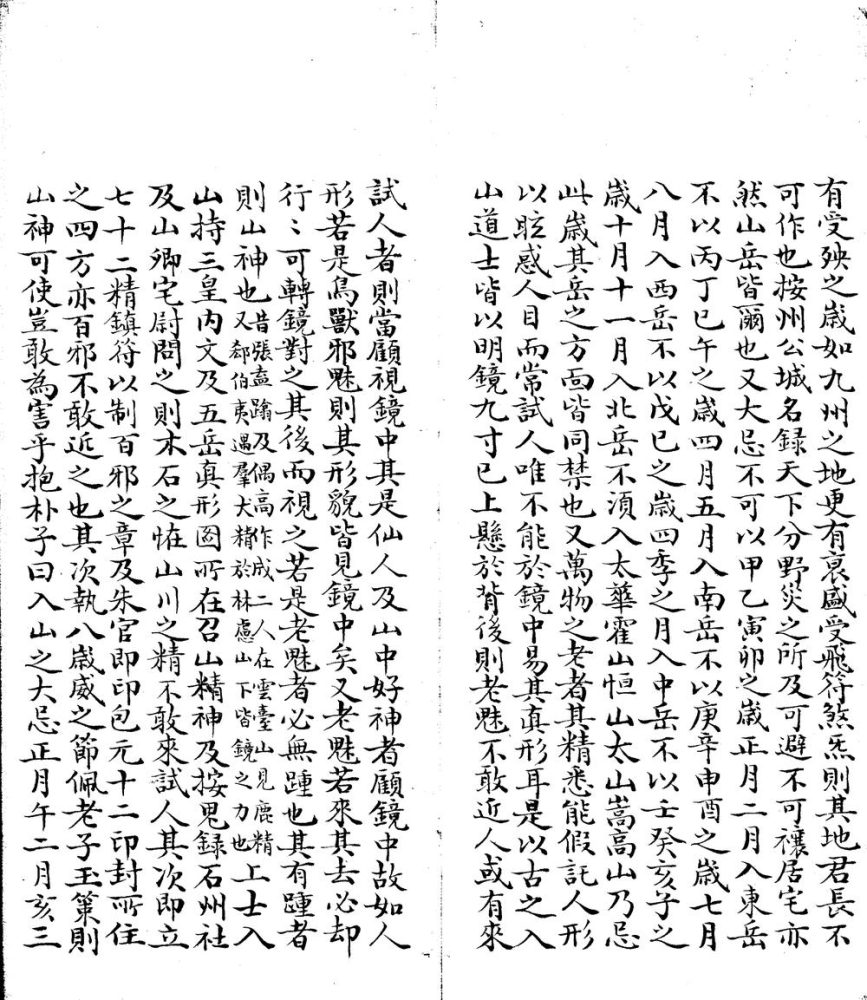 有受殃之歲如九州之地更有衰盛受飛符煞炁則其地君長不
可作也按州公城名録天下分野災之所及可避不可禳居宅亦
然山岳皆爾也又大忌不可以甲乙寅卯之歲正月二月入東岳
不以丙丁巳午之歲四月五月入南岳不以庚辛申酉之歲七月
八月入西岳不以戊巳之歲四季之月入中岳不以壬癸亥子之
歲十月十一月入北岳不須入太華霍山恒山太山嵩高山乃忌
此歲其岳之方面皆同禁也又萬物之老者其精悉能假託人形
以眩惑人目而常試人唯不能於鏡中易其真形耳是以古之入
山道士皆以明鏡九寸已上懸於背後則老魅不敢近人或有來
試人者則當顧視鏡中其是仙人及山中好神者顧鏡中故如人
形若是鳥獸邪魅則其形貌皆見鏡中矣又老魅若來其去必却
行〻可轉鏡對之其後而視之若是老魅者必無踵也其有踵者
則山神也昔張盍蹹及偶高作成二人在雲臺山見鹿精又郄伯夷遇羣犬精於林慮山下皆鏡之力也上士入
山持三皇内文及五岳真形圖所在召山精神及按鬼録石州社
及山卿宅尉問之則木石之恠山川之精不敢來試人其次即立
七十二精鎮符以制百邪之章及朱官即印包元十二印封所住
之四方亦百邪不敢近之也其次執八歲威之節佩老子玉策則
山神可使豈敢為害乎抱朴子曰入山之大忌正月午二月亥三